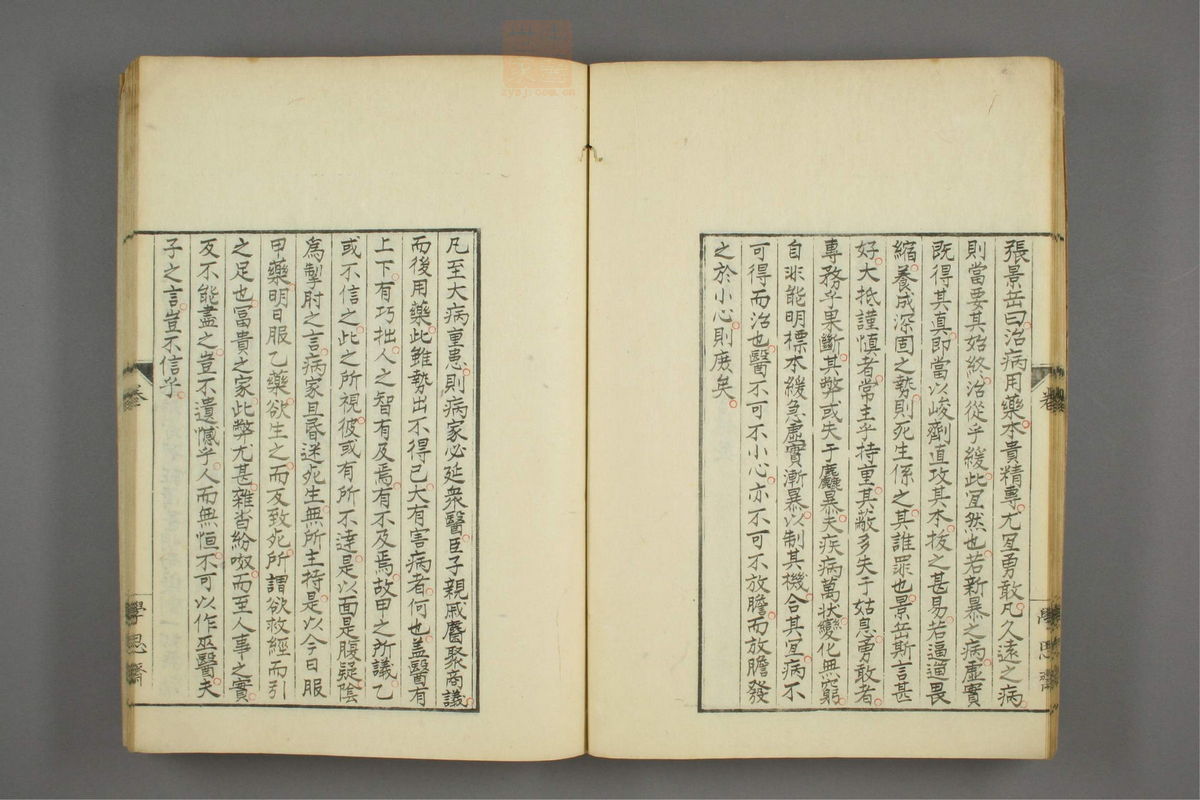 張景岳曰治病用藥本貴精專尤宜勇敢凡久遠之病
則當要其始終治從乎緩此宜然也若新暴之病虛實
既得其真即當以峻劑直攻其本拔之甚易若逼遛畏
縮養成深固之勢則死生係之其誰罪也景岳斯言甚
好大抵謹慎者常主乎持重其敝多失于姑息勇敢者
專務乎果斷其弊或失于麤暴夫疾病萬狀變化無窮
自非能明標本緩急虛實漸暴以制其機合其宜病不
可得而治也醫不可不小心亦不可不放膽而放膽發
之於小心則庶矣
凡至大病重患則病家必延衆醫臣子親戚麕聚商議
而後用藥此雖勢出不得已大有害病者何也盖醫有
上下有巧拙人之智有及焉有不及焉故甲之所議乙
或不信之此之所視彼或有所不達是以面是腹疑陰
爲掣肘之言病家且昏迷死生無所主持是以今日服
甲藥明日服乙藥欲生之而反致死所謂欲救經而引
之足也冨貴之家此弊尤甚雜沓紛呶而至人事之實
反不能盡之豈不遺憾乎人而無恒不可以作巫醫夫
子之言豈不信乎
學思齋
zysj.com.cn